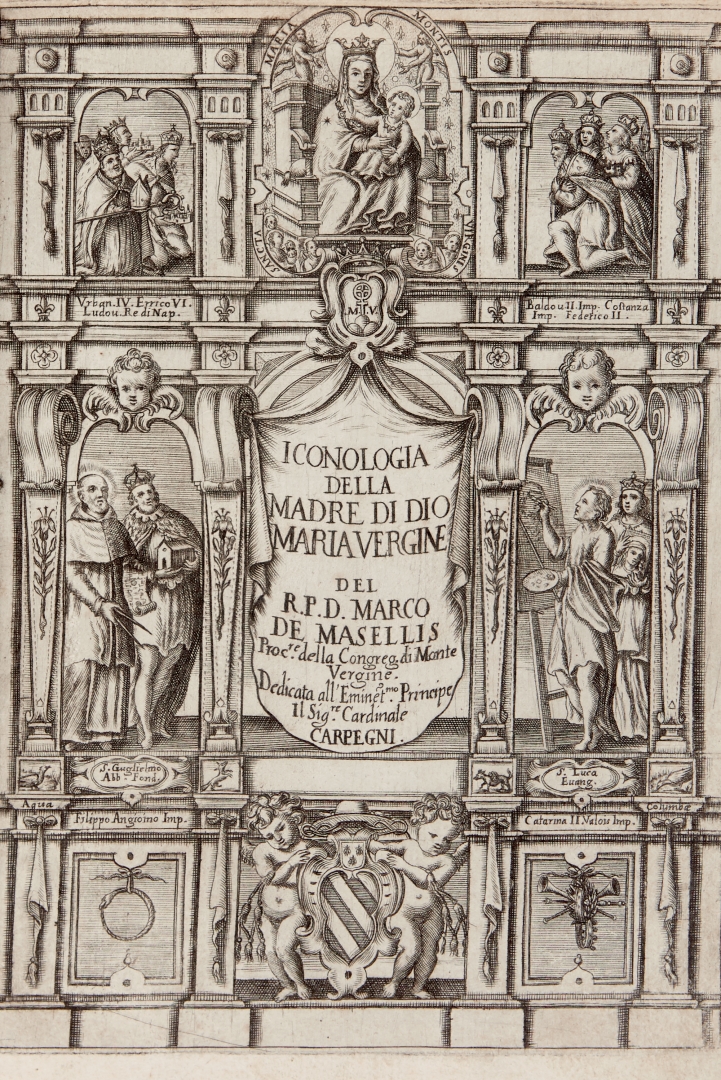 SANCTA MARIA MONTIS VIRGINIS
Vrban. IV. Errico VI.
Ludou. Re di Nap.
M V
Baldou II. Imp. Costanza
Imp. Federico II.
ICONOLOGIA
DELLA
MADRE DI DIO
MARIA VERGINE
DEL
R.P.D. MARCO
DE MASELLIS
Proc.re della Congreg. di Monte
Vergine.
Dedicata all'Eminet.mo Principe
Il Sig.re Cardinale
CARPEGNI.
S. Guglielmo
Abb. Fond.
S. Luca
Euang.
Columbæ
Filippo Angioino Imp.
Catarina II. Valois Imp.